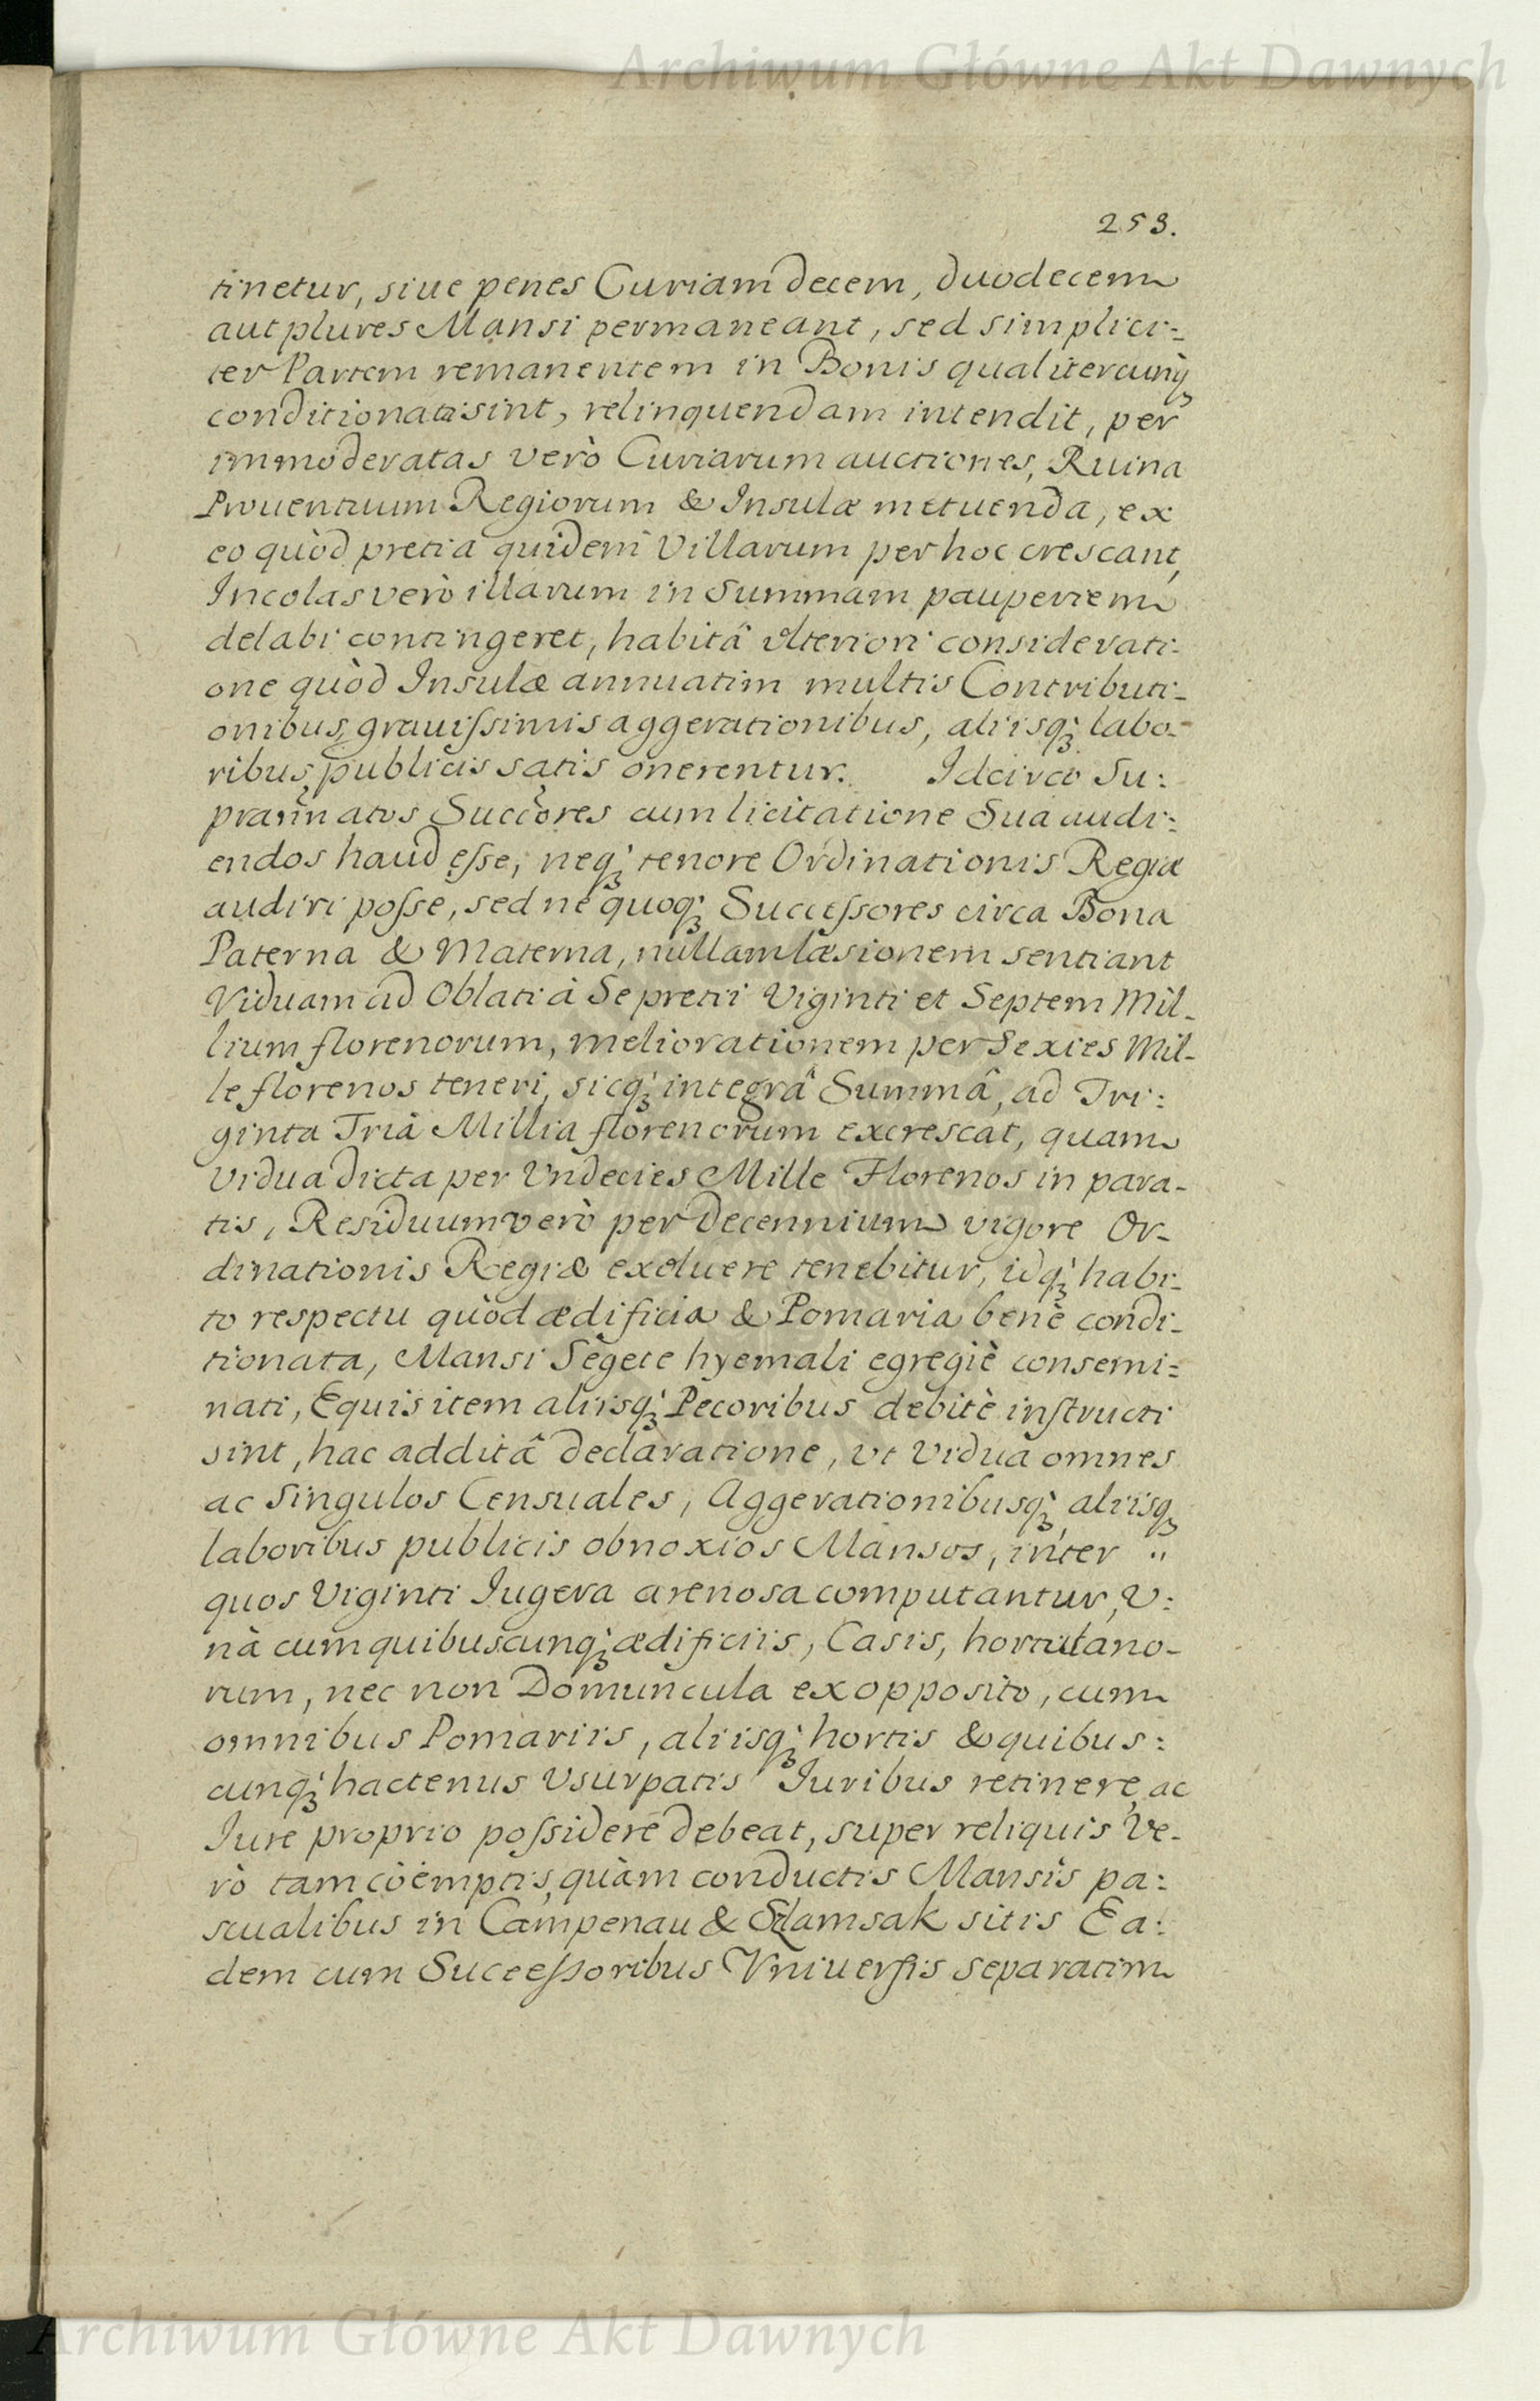 Archiwum Główne Akt Dawnych
253.
tinetur, siue penes Curiam decem, duodecem
aut plures Mansi permaneant, sed simplici=
ter Partem remanentem in Bonis qualitercunq̄
conditionatis sint, relinquendam intendit, per
immoderatas verò Curiarum auctiones, Ruina
Prouentuum Regiorum & Insulæ metuenda, ex
eo quòd pretia quidem Villarum per hoc crescant,
Incolas verò illarum in Summam pauperiem
delabi contingeret, habitâ vlteriori considerati-
one quòd Insulæ annuatim multis Contributi-
onibus, grauissimis aggerationibus, aliisq; labo-
ribus publicis satis onerentur. Idcirco Su:
prannatos Succores cum licitatione Sua audi:
endos haud esse, neq; tenore Ordinationis Regiæ
audiri posse, sed ne quoq; Successores circa Bona
Paterna & Materna, nullam læsionem sentiant
Viduam ad Oblati à Se pretii Viginti et Septem Mil-
lium florenorum, meliorationem per Sexies Mil-
le florenos teneri, sicq; integrâ Summâ, ad Tri:
ginta Tria Millia florenorum excrescat, quam
Vidua dicta per Vndecies Mille Florenos in para-
tis, Residuum verò per Decennium vigore Or-
dinationis Regiæ exoluere tenebitur, idq; habi-
to respectu quòd ædificia & Pomaria benè condi-
tionata, Mansi Segete hyemali egregiè consemi=
nati, Equis item aliisq; Pecoribus debitè instructi
sint, hac additâ declaratione, vt Vidua omnes
ac Singulos Censuales, Aggerationibusq; aliisq;
laboribus publicis obnoxios Mansos, inter "
quos Viginti Iugera arenosa computantur, V:
nà cum quibuscunq; ædificiis, Casis, hortulano-
rum, nec non Domuncula ex opposito, cum
omnibus Pomariis, aliisq; hortis & quibus:
cunq; hactenus Vsurpatis Iuribus retinere, ac
Iure proprio possidere debeat, super reliquis Ve-
rò tam còemptis, quàm conductis Mansis pa:
scualibus in Campenau & Szlamsak sitis Ea:
dem cum Successoribus Vniuersis separatim
Archiwum Główne Akt Dawnych